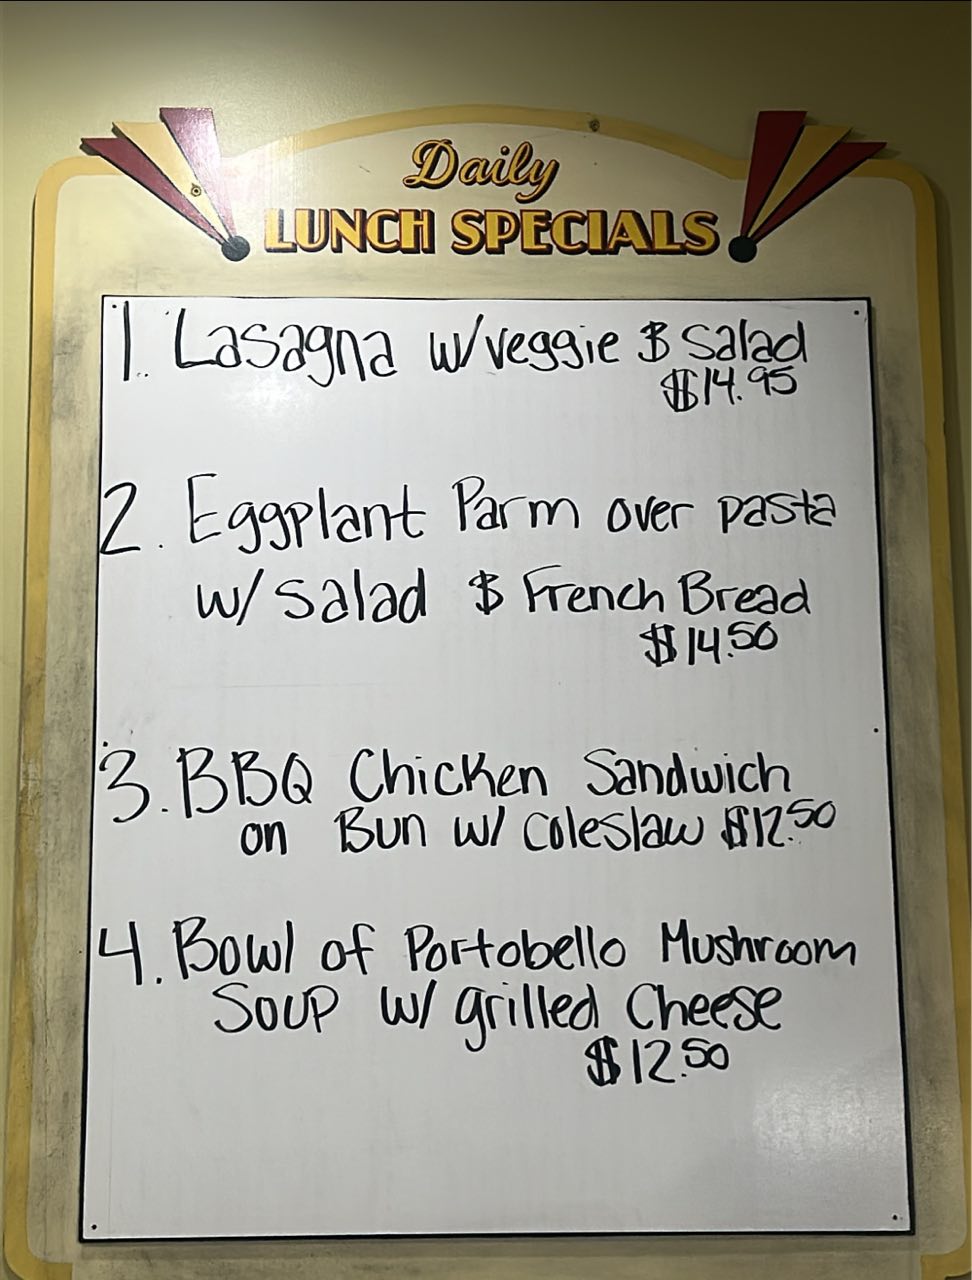 Daily
LUNCH SPECIALS
1. Lasagna w/veggie & Salad
$14.95
2. Eggplant Parm over pasta
w/ Salad & French Bread
$14.50
3. BBQ Chicken Sandwich
on Bun w/ Coleslaw $12.50
4. Bowl of Portobello Mushroom
Soup w/ grilled Cheese
$12.50